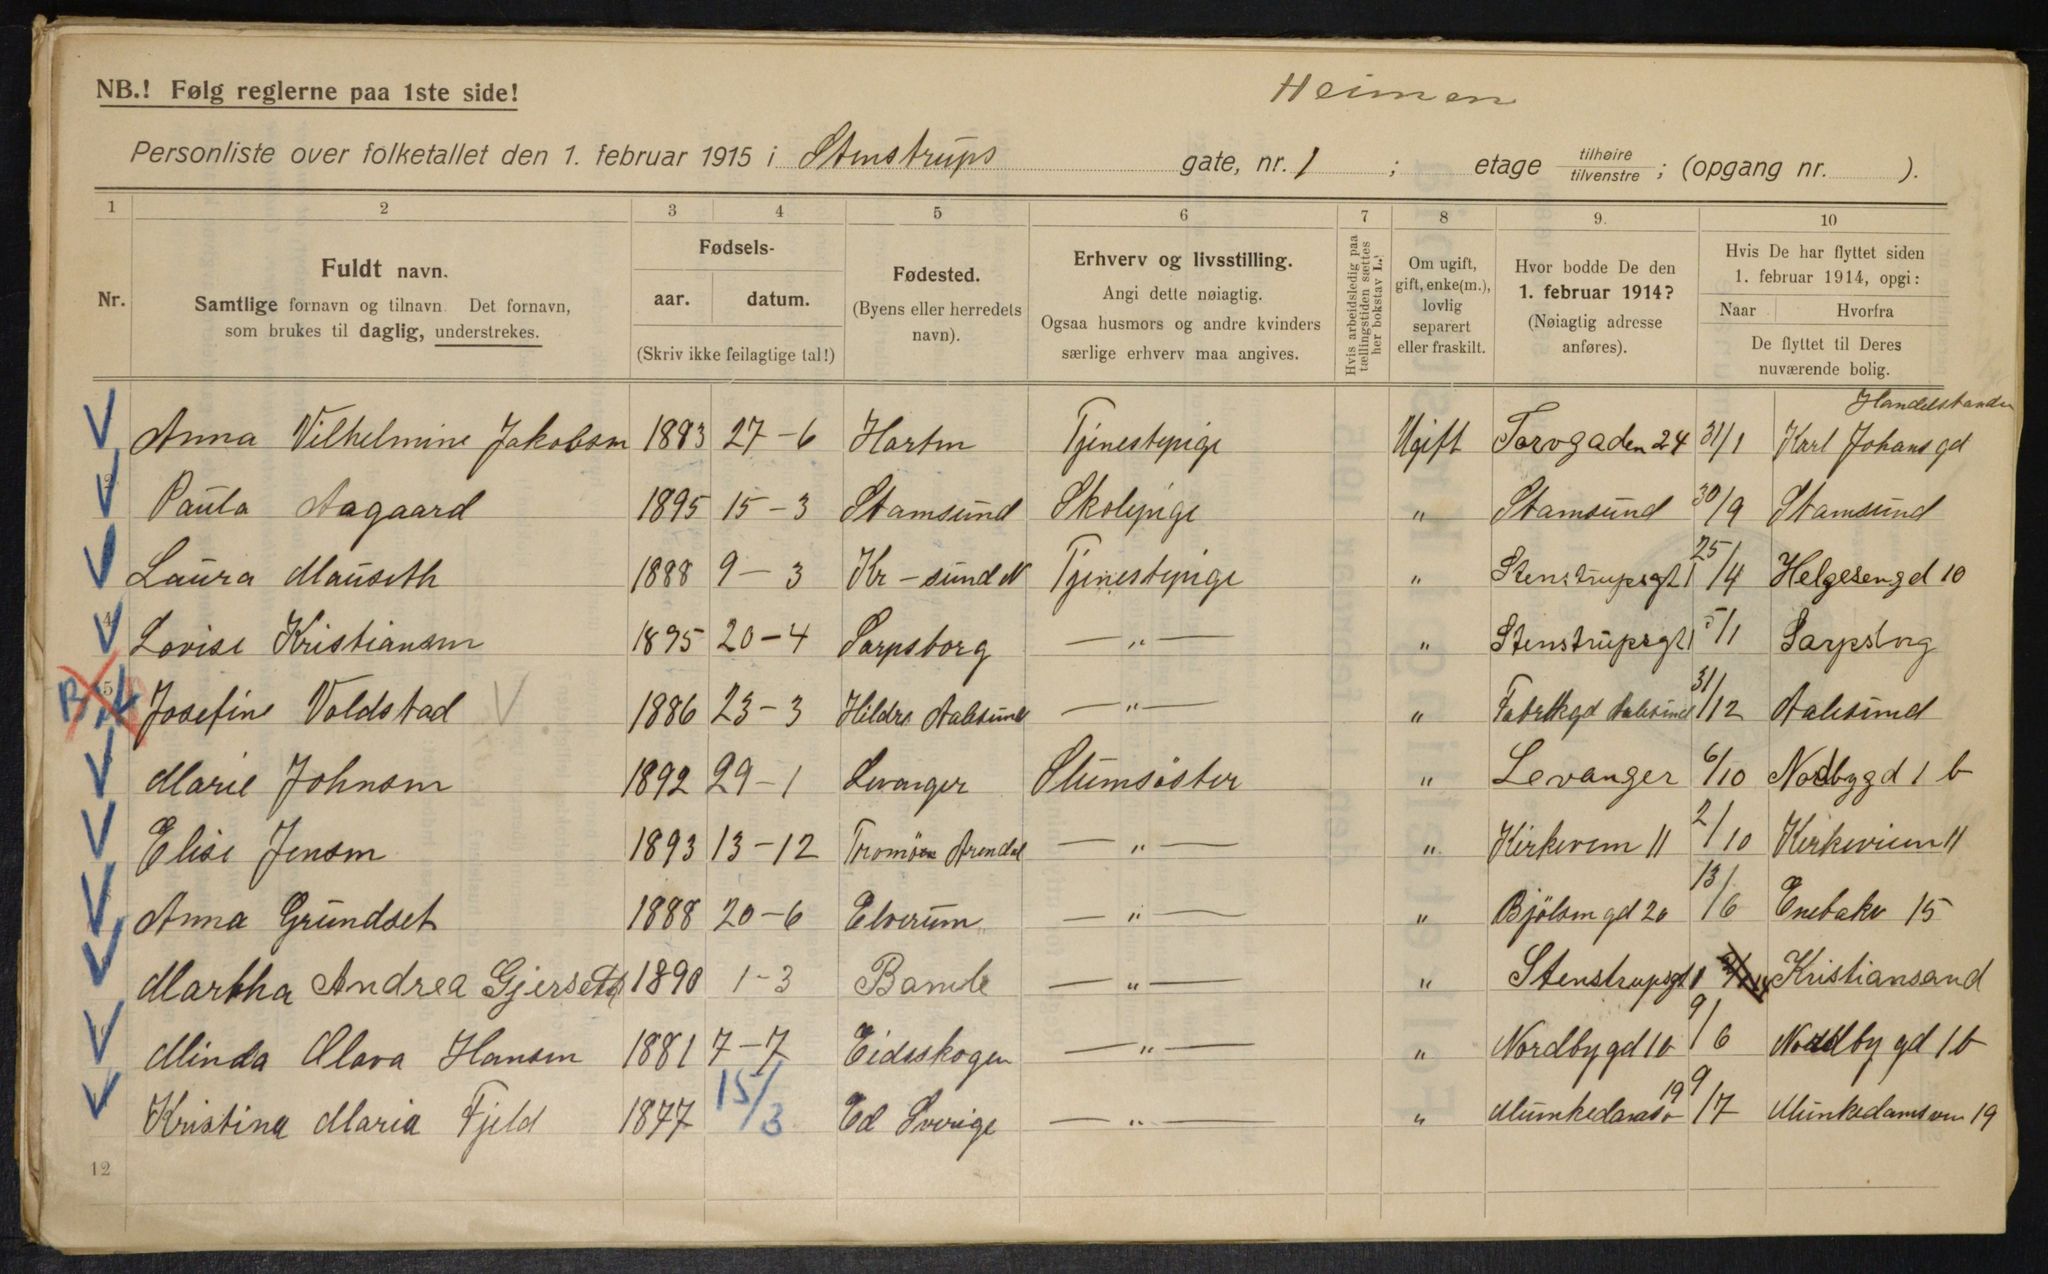 Heimen
NB.! Følg reglerne paa 1ste side!
Personliste over folketallet den 1. februar 1915 i Stenstrups gate, nr. 1 ; etage tilhøire tilvenstre ; (opgang nr. ).
1 2 3 4 5 6 7 8 9. 10
Nr.
Fuldt navn.
Samtlige fornavn og tilnavn. Det fornavn,
som brukes til daglig, understrekes.
Fødsels-
aar. datum.
(Skriv ikke feilagtige tal!)
Fødested.
(Byens eller herredets
navn).
Erhverv og livsstilling.
Angi dette nøiagtig.
Ogsaa husmors og andre kvinders
særlige erhverv maa angives.
Hvis arbeidsledig paa
tællingstiden sættes
her bokstav L.
Om ugift,
gift, enke(m.),
lovlig
separert
eller fraskilt.
Hvor bodde De den
1. februar 1914?
(Nøiagtig adresse
anføres).
Hvis De har flyttet siden
1. februar 1914, opgi:
Naar Hvorfra
De flyttet til Deres
nuværende bolig.
Anna Vilhelmine Jakobsen 1883 27-6 Tjenestepige Ugift Torvgaden 24 31/1 Karl Johans gd
Paula Aagaard 1895 15-3 Stamsund Skolepige " Stamsund 30/9 Stamsund
Laura Mauseth 1888 9-3 Kr-sund N Tjenestepige " Stenstrupsgt 1 25/4 Helgesengd 10
4 Lovise Kristiansen 1895 20-4 Sarpsborg —"— " Stenstrupsgt 1 5/1 Sarpsborg
5 B Josefine Voldstad V 1886 23-3 Hildre Aalesund —"— " Fabrikgd Aalesund 31/12 Aalesund
Marie Johnsen 1892 29-1 Levanger Slumsøster " Levanger 6/10 Nordbygd 1 b
Elise Jensen 1893 13-12 Tromøen Arendal —"— " Kirkeveien 11 2/10 Kirkeveien 11
Anna Grundset 1888 20-6 Elverum —"— " Bjölsengd 20 13/6 Enebakv 15
Martha Andrea 1890 1-3 Bamle —"— " Stenstrupsgt 1 Kristiansand
Minda Olava Hansen 1881 7-7 Eidsskogen —"— " Nordbygd 1b 9/6 Nordbygd 1b
Kristina Maria Fjeld 1877 15/3 Ed Sverige —"— " Munkedamsv 19 9/7 Munkedamsveien 19
12